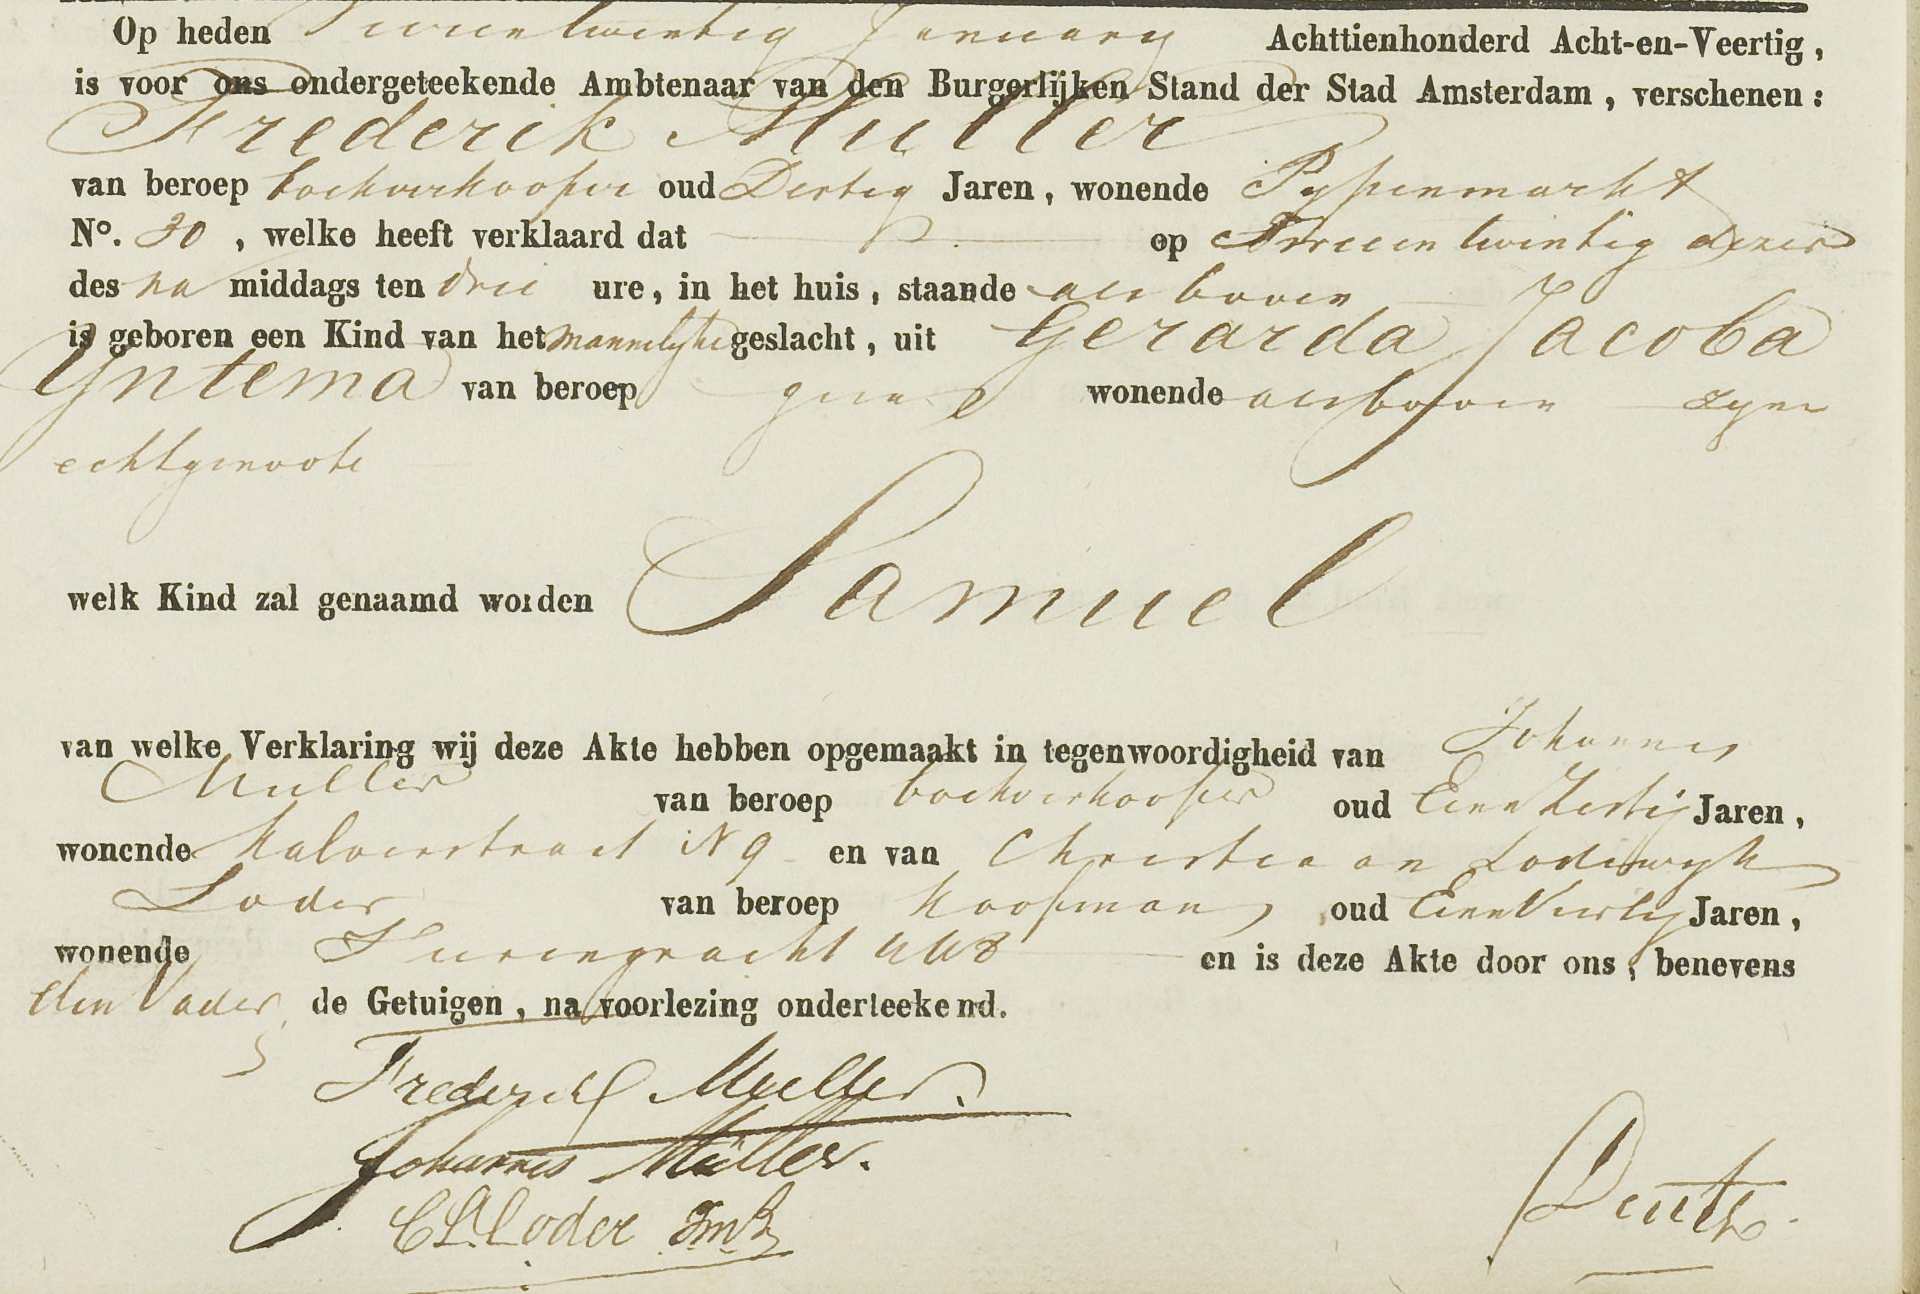 Op heden January Achttienhonderd Acht-en-Veertig,
is voor ons ondergeteekende Ambtenaar van den Burgerlijken Stand der Stad Amsterdam, verschenen:
Frederik Muller
van beroep boekverkooper oud Dertig Jaren, wonende Pypenmarkt
No. 30, welke heeft verklaard dat op Tweeentwintig dezer
des na middags ten drie ure, in het huis, staande als boven
is geboren een Kind van het mannelyke geslacht, uit Gerarda Jacoba
Yntema van beroep geene wonende als boven zyne
echtgenoote
welk Kind zal genaamd worden Samuel
van welke Verklaring wij deze Akte hebben opgemaakt in tegenwoordigheid van Johannes
Muller van beroep boekverkooper oud Jaren,
wonende Kalverstraat N 9 en van Christiaan Lodewyk
Loder van beroep Koopman oud Jaren,
wonende en is deze Akte door ons, benevens
den Vader, de Getuigen, na voorlezing onderteekend.
Frederik Muller.
Johannes Müller.
C L Loder Jmz